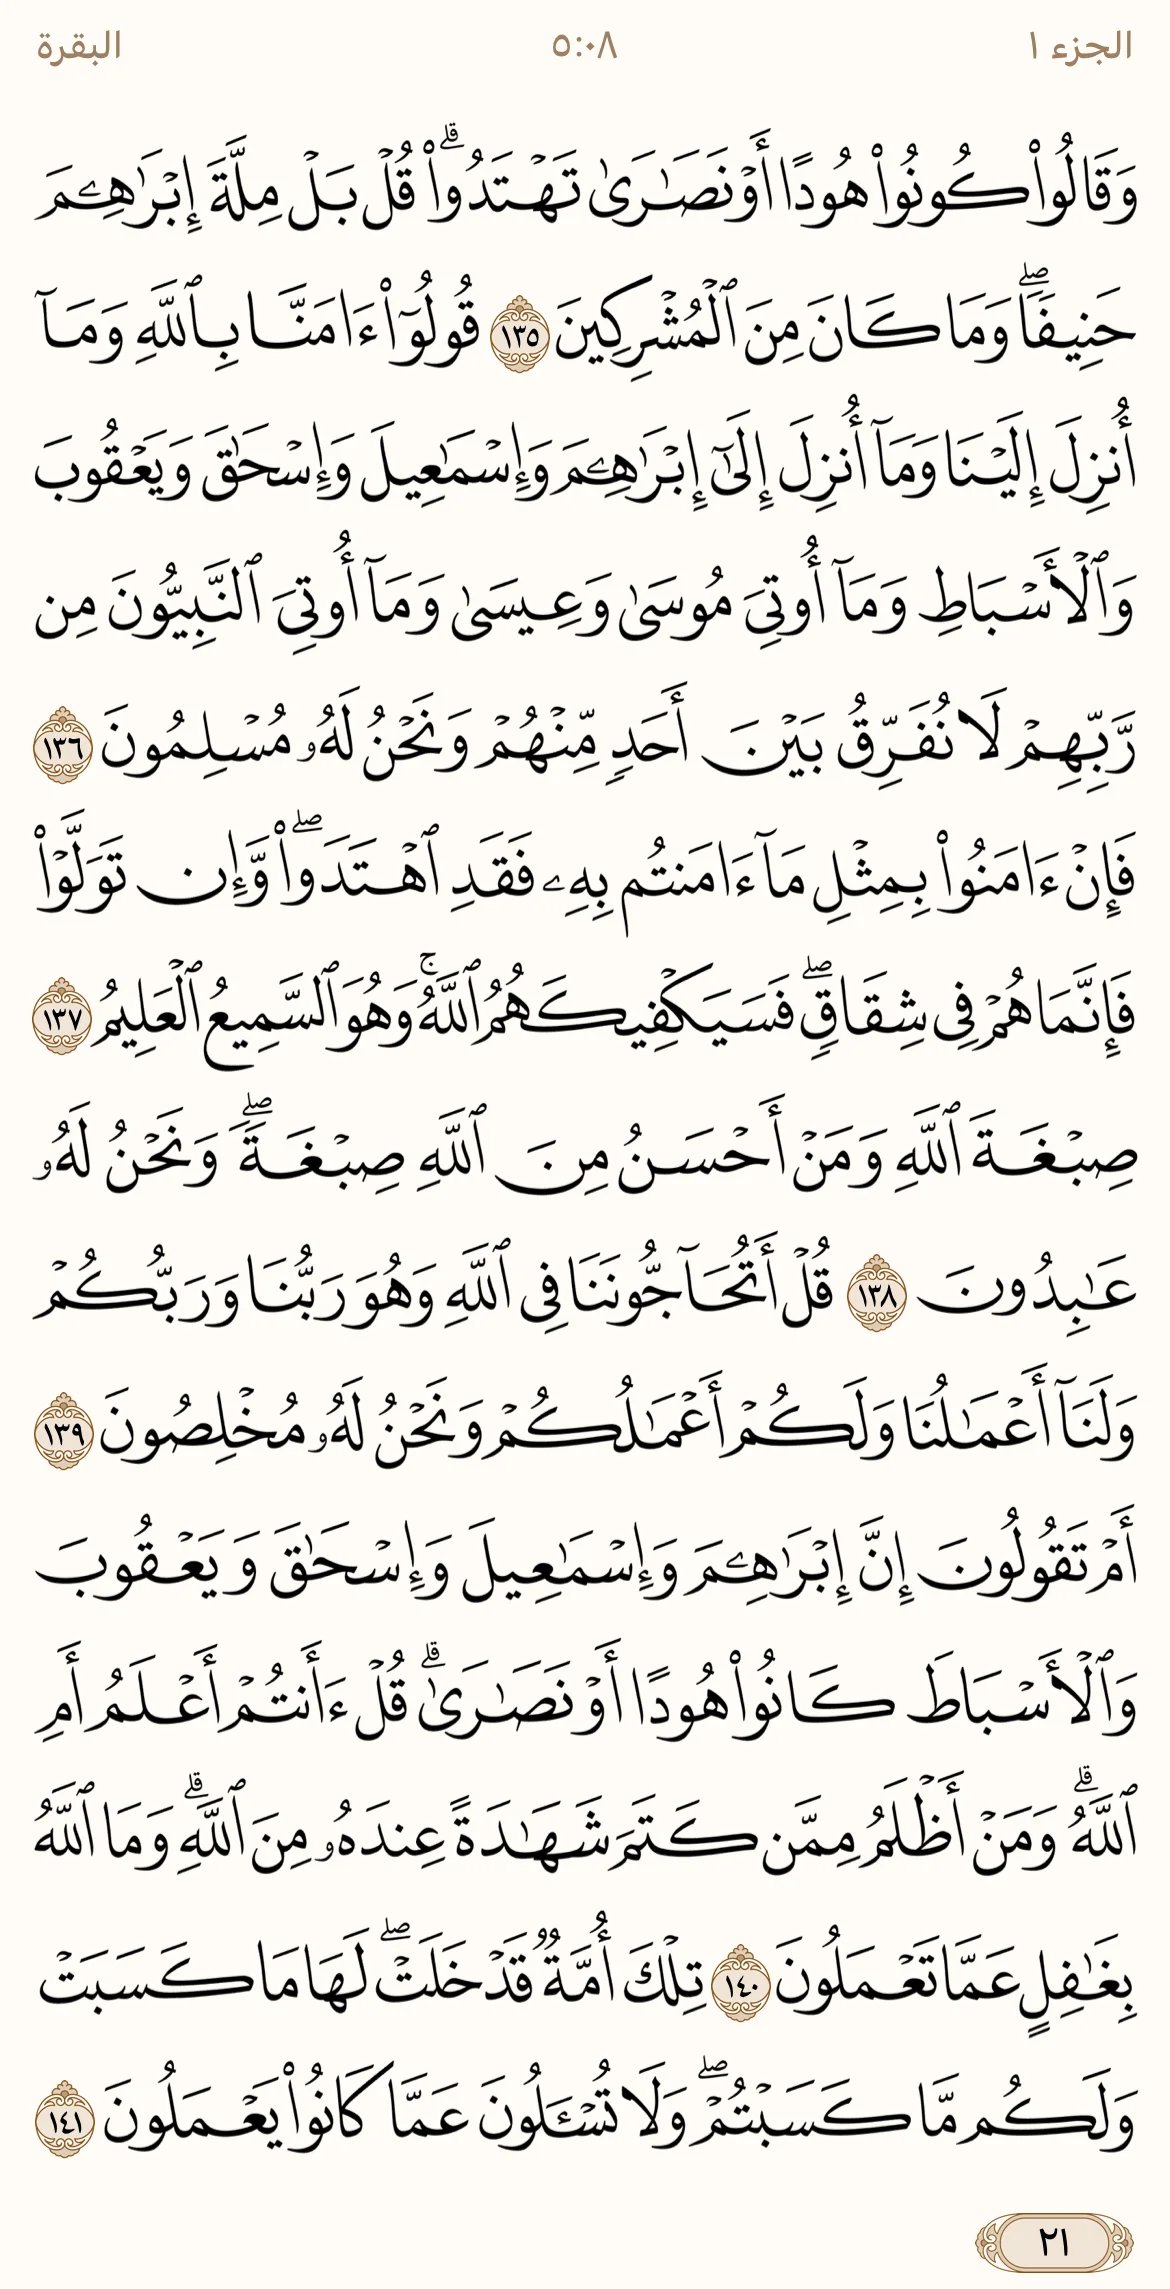 الجزء ١
٥:٠٨
البقرة
وَقَالُوا۟ كُونُوا۟ هُودًا أَوْ نَصَـٰرَىٰ تَهْتَدُوا۟ ۗ قُلْ بَلْ مِلَّةَ إِبْرَٰهِـۧمَ
حَنِيفًا ۖ وَمَا كَانَ مِنَ ٱلْمُشْرِكِينَ ١٣٥ قُولُوٓا۟ ءَامَنَّا بِٱللَّهِ وَمَآ
أُنزِلَ إِلَيْنَا وَمَآ أُنزِلَ إِلَىٰٓ إِبْرَٰهِـۧمَ وَإِسْمَـٰعِيلَ وَإِسْحَـٰقَ وَيَعْقُوبَ
وَٱلْأَسْبَاطِ وَمَآ أُوتِىَ مُوسَىٰ وَعِيسَىٰ وَمَآ أُوتِىَ ٱلنَّبِيُّونَ مِن
رَّبِّهِمْ لَا نُفَرِّقُ بَيْنَ أَحَدٍ مِّنْهُمْ وَنَحْنُ لَهُۥ مُسْلِمُونَ ١٣٦
فَإِنْ ءَامَنُوا۟ بِمِثْلِ مَآ ءَامَنتُم بِهِۦ فَقَدِ ٱهْتَدَوا۟ ۖ وَّإِن تَوَلَّوْا۟
فَإِنَّمَا هُمْ فِى شِقَاقٍ ۖ فَسَيَكْفِيكَهُمُ ٱللَّهُ ۚ وَهُوَ ٱلسَّمِيعُ ٱلْعَلِيمُ ١٣٧
صِبْغَةَ ٱللَّهِ وَمَنْ أَحْسَنُ مِنَ ٱللَّهِ صِبْغَةً ۖ وَنَحْنُ لَهُۥ
عَـٰبِدُونَ ١٣٨ قُلْ أَتُحَآجُّونَنَا فِى ٱللَّهِ وَهُوَ رَبُّنَا وَرَبُّكُمْ
وَلَنَآ أَعْمَـٰلُنَا وَلَكُمْ أَعْمَـٰلُكُمْ وَنَحْنُ لَهُۥ مُخْلِصُونَ ١٣٩
أَمْ تَقُولُونَ إِنَّ إِبْرَٰهِـۧمَ وَإِسْمَـٰعِيلَ وَإِسْحَـٰقَ وَيَعْقُوبَ
وَٱلْأَسْبَاطَ كَانُوا۟ هُودًا أَوْ نَصَـٰرَىٰ ۗ قُلْ ءَأَنتُمْ أَعْلَمُ أَمِ
ٱللَّهُ ۗ وَمَنْ أَظْلَمُ مِمَّن كَتَمَ شَهَـٰدَةً عِندَهُۥ مِنَ ٱللَّهِ ۗ وَمَا ٱللَّهُ
بِغَـٰفِلٍ عَمَّا تَعْمَلُونَ ١٤٠ تِلْكَ أُمَّةٌ قَدْ خَلَتْ ۖ لَهَا مَا كَسَبَتْ
وَلَكُم مَّا كَسَبْتُمْ ۖ وَلَا تُسْـَٔلُونَ عَمَّا كَانُوا۟ يَعْمَلُونَ ١٤١
٢١